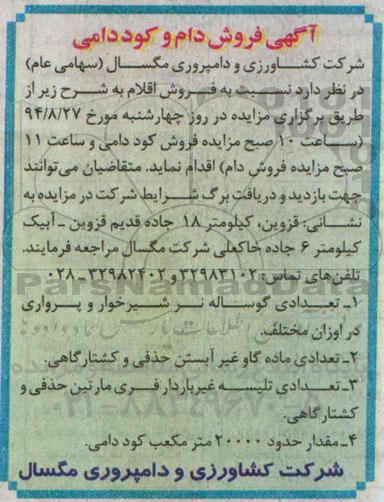 آگهی فروش دام و کود دامی
شرکت کشاورزی و دامپروری مگسال (سهامی عام)
در نظر دارد نسبت به فروش اقلام به شرح زیر از
طریق برگزاری مزایده در روز چهارشنبه مورخ ۹۴/۸/۲۷
(ساعت ۱۰ صبح مزایده فروش کود دامی و ساعت ۱۱
صبح مزایده فروش دام) اقدام نماید. متقاضیان می‌توانند
جهت بازدید و دریافت برگ شرایط شرکت در مزایده به
نشانی: قزوین، کیلومتر ۱۸ جاده قدیم قزوین ـ آبیک
کیلومتر ۶ جاده خاکعلی شرکت مگسال مراجعه فرمایند.
تلفن‌های تماس: ۳۲۹۸۳۱۰۲ و ۳۲۹۸۲۴۰۲ ـ ۰۲۸
ParsNamadData
۱ـ تعدادی گوساله نر شیرخوار و پرواری
در اوزان مختلف.
۲ـ تعدادی ماده گاو غیر آبستن حذفی و کشتارگاهی.
۳ـ تعدادی تلیسه غیرباردار فری مارتین حذفی و
کشتارگاهی.
۴ـ مقدار حدود ۲۰۰۰۰ متر مکعب کود دامی.
شرکت کشاورزی و دامپروری مگسال